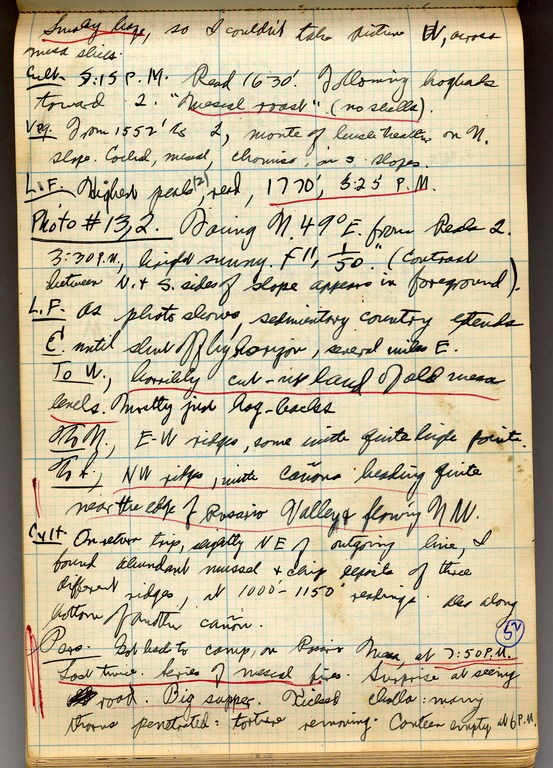 Smoky haze, so I couldn't take picture W, across
mesa slices.
Cult. 5:15 P.M. Read 1630'. Following hogbacks
toward 2. "Mescal roast" (no shells).
Veg. From 1552' to 2, monte of brush heather on N.
slope. Cochal, mescal, chamiso, on S. slopes.
L.F. Highest peak, (2) read, 1770', 5:25 P.M.
Photo #13,2. Facing N. 49° E. from Peak 2.
5:30 P.M., bright sunny. F 11, 1/50". (Contrast
between N. + S. sides of slope appears in foreground).
L.F. As photo shows, sedimentary country extends
E. until of big horizon, several miles E.
To W., horribly cut-up land of old mesa
levels. Mostly just hog-backs
To N., E-W ridges, some with quite high points.
To S., NW ridges, with cañons heading quite
near the edge of Rosario Valley + flowing NW.
Cult On return trip, slightly NE of outgoing line, I
found abundant mussel + chip deposits of three
different ridges, at 1000'-1150' readings. Also along
bottom of another cañon.
52
Pers. Got back to camp, on Rosario Mesa, at 7:50 P.M.
Lost twice. Series of mescal fires. Surprise at seeing
road. Big supper. Kicked cholla: many
thorns penetrated: torture removing. Canteen empty at 6 P.M.